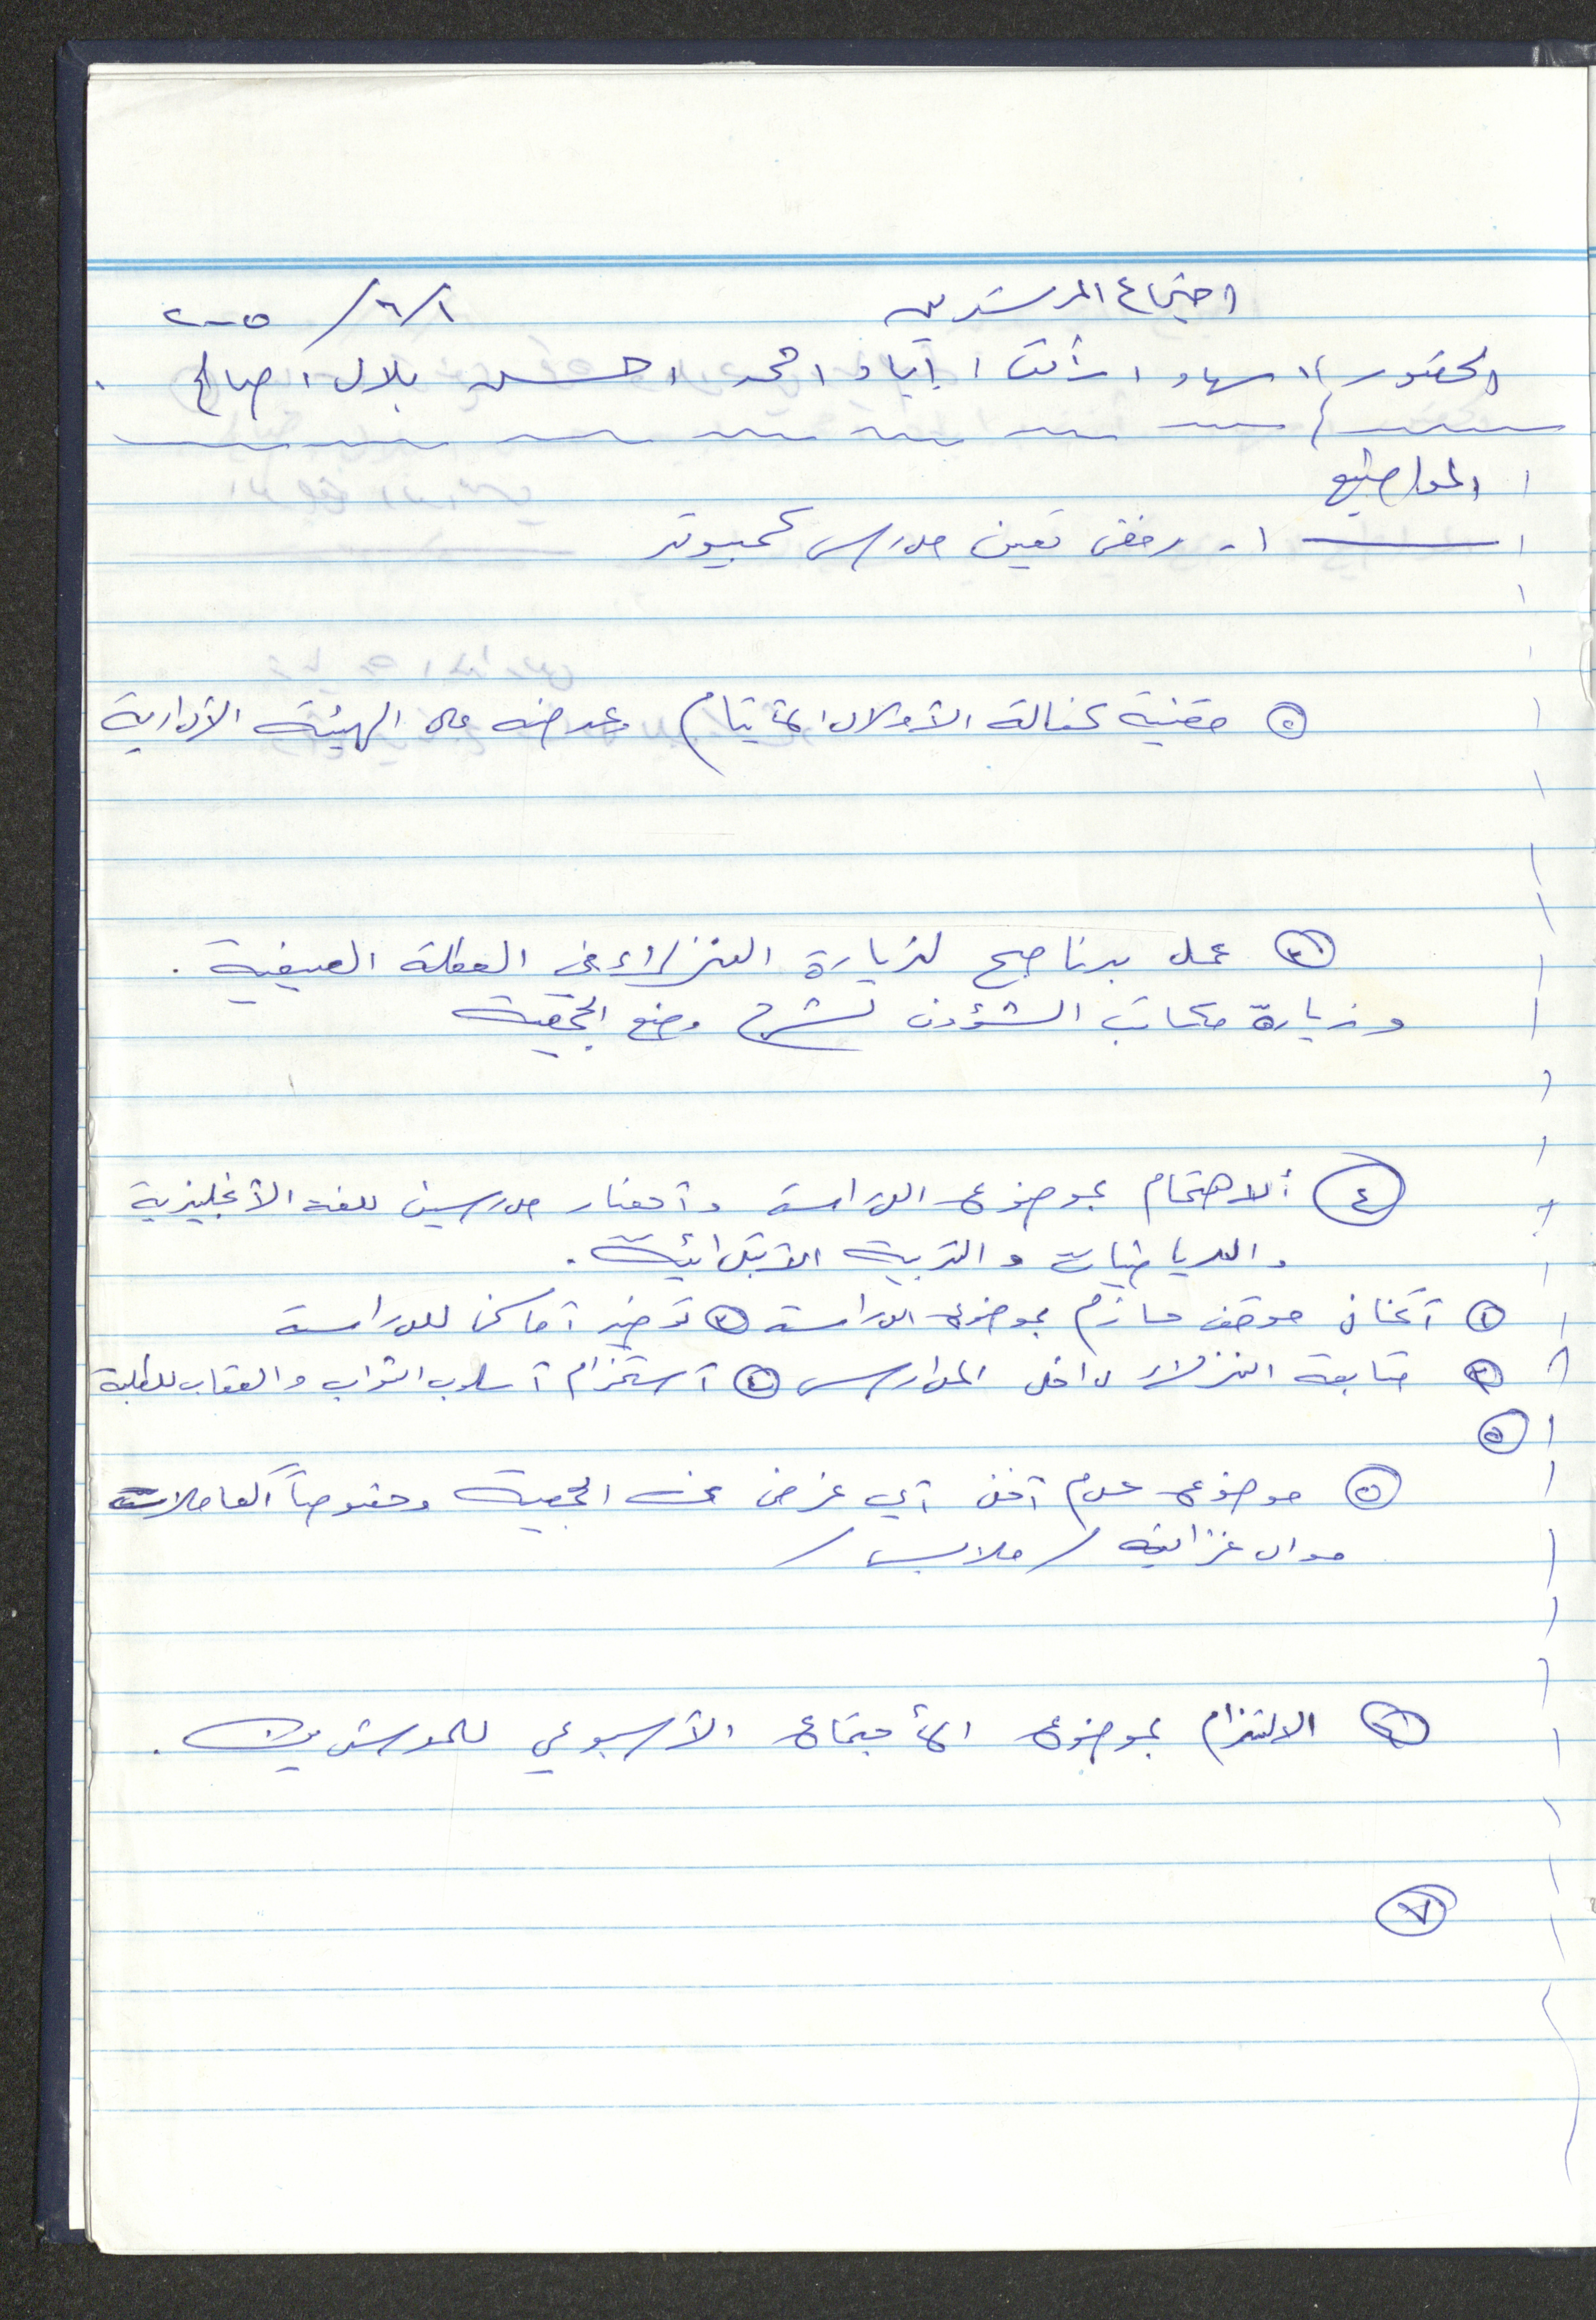 اجتماع المرشدين ١/٦/٢٠٠٥
الحضور / سهاد ، رأفت ، أياد ، احمد ، حسن بلال ، صالح .
المواضيع
١- رفض تعين مدرس كمبيوتر
٥ قضية كفالة الأولاد الأيتام وعرضه على الهيئة الأدارية
٣ عمل برنامج لزيارة النزلاء في العطلة الصيفية .
وزيارة مكاتب الشؤون لشرح وضع الجمعية
٤ ألاهتمام بموضوع الدراسة وأحضار مدرسين للغه الأنجليزية
والرياضيات والتربية الأبتدائية .
١ أتخاذ موقف حازم بموضوع الدراسة ٢ توفير أماكن للدراسة
٣ متابعة النزلاء داخل المدارس ٤ أستخدام أسلوب الثواب والعقاب للطلبة
٥
٥ موضوع عدم أخذ أي غرض من الجمعية وخصوصاً العاملات
مواد غذائيه / ملابس /
٦ الالتزام بموضوع الأجتماع الأسبوعي للمرشدين .
٧